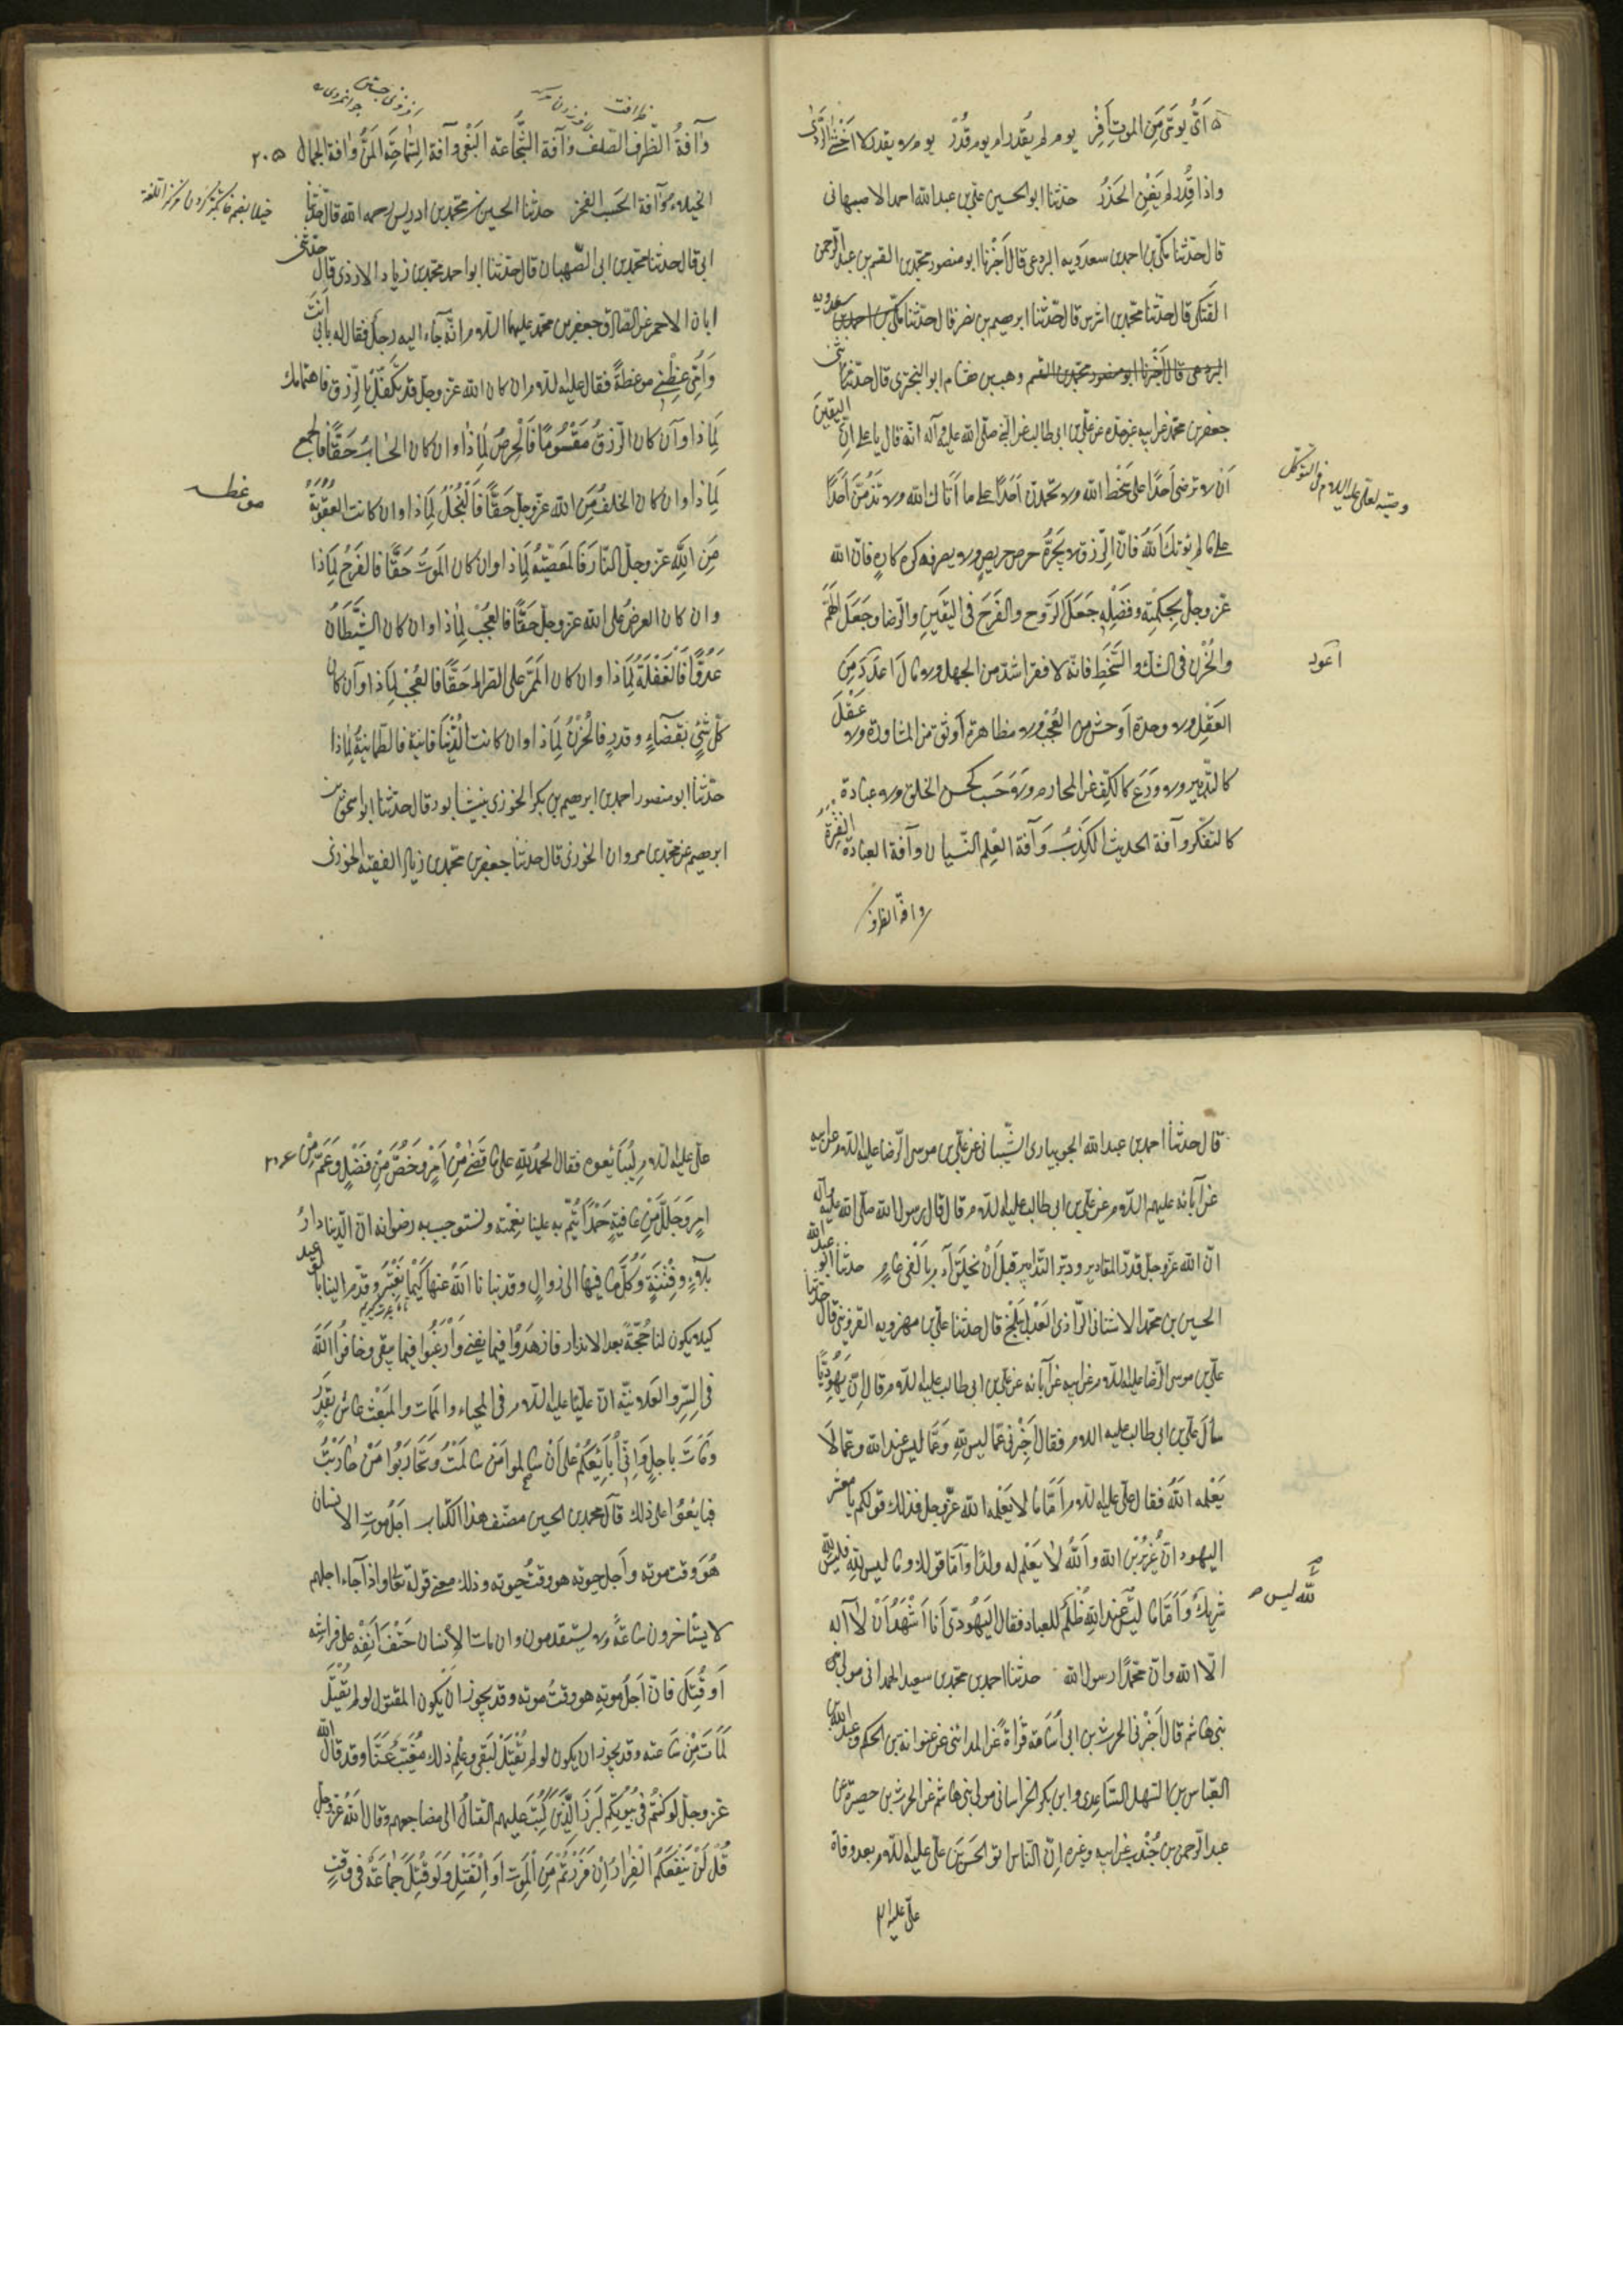 أىّ يومَىّ مِن الموتِ أَفِرّ يوم لم يُقدَر ام يوم قُدِر يوم لا يقدر لا اخشى الردى
واذا قُدِّر لم يَغْنِ الحَذَرُ حدثنا ابو الحسين علي بن عبدالله احمد الاصبهانى
قال حدثنا مكّى بن احمد بن سعدويه البرذعى قال أَخْبَرَنا ابو منصور محمّد بن القسم بن عبد الرّحمن
العَتَكى قال حدّثنا محمد بن اشرس قال حدّثنا ابرهيم بن نصر قال حدّثنا مكّى بن احمد بن سعدويه
البرذعى قال أَخْبَرَنا ابو منصور محمد بن القسم وهب بن هشام ابو البَخترى قال حدّثنى
جعفر بن محمد عن ابيه عن جدّه عن علي بن ابى طالب عن النبى صلّى الله عليه وآله انّه قال يا على انّ اليقينَ
أَنْ لا ترضى أَحَدًا على سَخْط الله ولا تحمدنّ أحَدًا على ما أَتاك الله ولا تذُمَّنَّ أحَدًا
على ما لم يُؤتِكَ اللهُ فانّ الرّزق لا يَجُرُّهُ حرص حريصٍ ولا يصرفه كره كارهٍ فانّ الله
عزّ وجلّ بحِكمَتِه وفضَلِهِ جَعَلَ الرّوح والفَرَحَ فى اليَقينِ والرّضا وجَعَلَ الهَمّ
والحُزْن فى الشك والسَّخَطِ فانّه لا فقر اشدّ من الجهل ولا مال أَعْوَدَ مِنَ
العَقْلِ ولا وحدة أوحش من العُجْبِ ولا مظاهرة أوثق من المشاورة ولا عَقْلَ
كالتّدبير ولا ورَعَ كالكفِّ عن المحارم ولا حَسَب كحسن الخلق ولا عبادة
كالتفكر وآفة الحديث الكَذِبُ وَآفة العِلم النّسيان وآفة العبادة الفَتْرَةُ
وصيّته لعلى عليه السلام فى التوكل
اعود
وافة الظرف
وآفةُ الظّرف الصّلَفُ وَآفة الشَّجاعة البَغْى وآفة السَّماحَة المَنُّ وَافة الجمال
٢٠٥
الخيلاء وَآفة الحَسَب الفخر حدثنا الحسين بن محمّد بن ادريس رحمه الله قال حدّثنا
ابى قال حدثنا محمّد بن ابى الصّهبان قال حدّثنا ابو احمد محمّد بن زياد الازدى قال حدّثنى
ابان الاحمر عن الصّادق جعفر بن محمّد عليهما السّلام انّه جآء اليه رجلٌ فقال له بأبى أنتَ
وَأُمّى عِظْنى موعظةً فقال عليه السّلام ان كان الله عزّ وجلّ قد تكَفَّلَ بالرّزق فاهتمامك
لِماذا وآن كان الرّزقُ مَقْسُومًا فَالْحِرصُ لِماذا وان كان الحِسابُ حَقًّا فالجمع
لِماذا وان كان الخلَفُ مِنَ الله عزّ وجلّ حَقًّا فَالبُخْلُ لِماذا وان كانت العُقوبَةُ
مِنَ اللهِ عزّ وجلّ النّارَ فَالمعْصِيَةُ لِماذا وان كان المَوتُ حَقًّا فالفَرَحُ لِماذا
وان كان العرضُ على الله عزّ وجلّ حَقًّا فالعُجْب لِماذا وان كان الشَّيطانُ
عَدُوًّا فَالغَفْلَةُ لِماذا وان كان المَمَرّ على الصّراط حَقًّا فالعُجْبُ لِماذا وآن كان
كلّ شَىْءٍ بقَضآءٍ وقَدَرٍ فالحُزنُ لِماذا وان كانت الدُّنيَا فانيَةً فالطّمأنينَةُ لِماذا
حدّثنا ابو منصور احمد بن ابرهيم بن بكر الخوزى بنيشابور قال حدّثنا ابو اسحق
ابرهيم بن محمّد بن مروان الخوزى قال حدثنا جعفر بن محمّد بن زياد الفقيه الخوزى
موعظه
قال حدّثنا احمد بن عبدالله الجويبارى الشّيبانى عن على بن موسى الرّضا عليه السّلام عن ابيه
عن آبائه عليهم السّلام عن على بن ابى طالب عليه السّلام قال قال رسول الله صلّى الله عليه وآله
انّ الله عزّ وجلّ قدّر المقادير ودبّر التّدابير قبل أنْ يخلَقَ آدم بِأَلفَى عامٍ حدثنا ابو عبدالله
الحسين بن محمّد الاشنانى الرّازى العَدْل ببَلْخ قال حدّثنا على بن مهرويه القزوينى قال حدّثنا
علىّ بن موسى الرّضا عليه السّلام عن ابيه عن آبائه عن على بن ابى طالب عليه السّلام قال إنّ يَهُودِيًّا
سأل علىّ بن ابى طالب عليه السلام فقال أَخْبِرْنى عَمّا ليس للهِ وَعَمَّا ليس عند الله وعمّا لا
يَعْلمه اللهُ فقال على عليه السّلام أمّا ما لا يَعْلمه الله عزّ وجل فذلك قولكم يا معشر
اليهود انّ عُزَيْر بن الله واللهُ لا يَعْلم له ولدًا وأمّا قولك وما ليس للهِ فليس لله
شريك وَأَمّا ما ليسَ عند اللهِ ظُلم للعباد فقال اليَهُودىّ أَنا أَشْهَدُ أَنْ لا آله
الّا الله وانّ محَمّدًا رسول الله حدثنا احمد بن محمّد بن سعيد الهمدانى مولى
بنى هاشم قال أَخْبَرنى الحرث بن ابى أسامة قرآءةً عن المدائنى عن عوانة بن الحكم وعبدالله بن
العبّاس بن السّهل السّاعِدى وابن بكر الخراسانى مولى بنى هاشم عن الحرث بن حصيرة عن
عبد الرّحمن بن جُنْدب عن ابيه وغيره إنّ النّاس اتو الحَسَن بن علىّ عليه السّلام بعد وفاة
لله ليس
علىّ عليه الم
علىّ عليه السّلام ليُبَايعوه فقال الحمدُ للهِ على ما قضى مِنْ أَمْرٍ وخصَّ مِن فَضْلٍ وَعَمَّ مِنْ
٢٠٦
امرٍ وَجَلَّلَ مِن عافيَةٍ حَمْدًا يُتِمّ به علينا نِعْمته ونستوجب به رضوانه انّ الدّنيا دارُ
بلآءٍ وفِتْنَةٍ وكُلّ ما فيها الى زوالٍ وقد نبّأنا اللهُ عنها كَيْما نَعْتَبِر وقدّم الينا بالوعيد
كيلا يكون لنا حُجّةٌ بعد الانذار فازهَدُوا فيما يفنى وَأَرْغَبُوا فيما يبقى وخافُوا اللهَ
فى السِّرِّ والعَلانيّة انّ عليًّا عليه السّلام فى المحياء والمَمَات والمَبْعَث عاش بقَدَرٍ
وَمَاتَ باجلٍ وَإِنّى أُبايِعُكُمْ على أنْ تسالموا مَنْ سالَمْتُ وَتُحَارِبُوا مَنْ حَارَبْتُ
فبايَعُوا على ذلك قآل محمد بن الحسين مصنّف هذا الكتاب اجَلُ مَوتِ الانسان
هُوَ وقت موته وأَجل حيوته هو وقتُ حيوته وذلك معنى قوله تعالى واذا جآء اجلهم
لا يستأخرون ساعَةً ولا يستقدمون وان مات الإنسان حَتْفَ أَنفِهْ على فراشِه
أَو قُتِلَ فانّ أجَلَ مَوتِهِ هو وقتُ موته وقد يجوز انْ يكون المقتول لو لم يُقْتَل
لَمَات مِنْ ساعته وقد يجوز ان يكون لو لم يُقْتَل لَبَقى وعِلْم ذلك مُغَيَّبٌ عَنَّا وقد قال الله
عزّ وجلّ لو كنتُمْ فى بُيُوتِكُم لَبَرزَ الّذينَ كُتِبَ عليهم القتالُ الى مضاجعهم وقال اللهُ عزّ وجلّ
قُلْ لَنْ يَنفَعَكُمُ الفِرارُ إِنْ فَرَرْتُمْ مِنَ الْمَوتِ أَو الْقَتلِ وَلَو قُتِلَ جَماعَةٌ فى وقتٍ